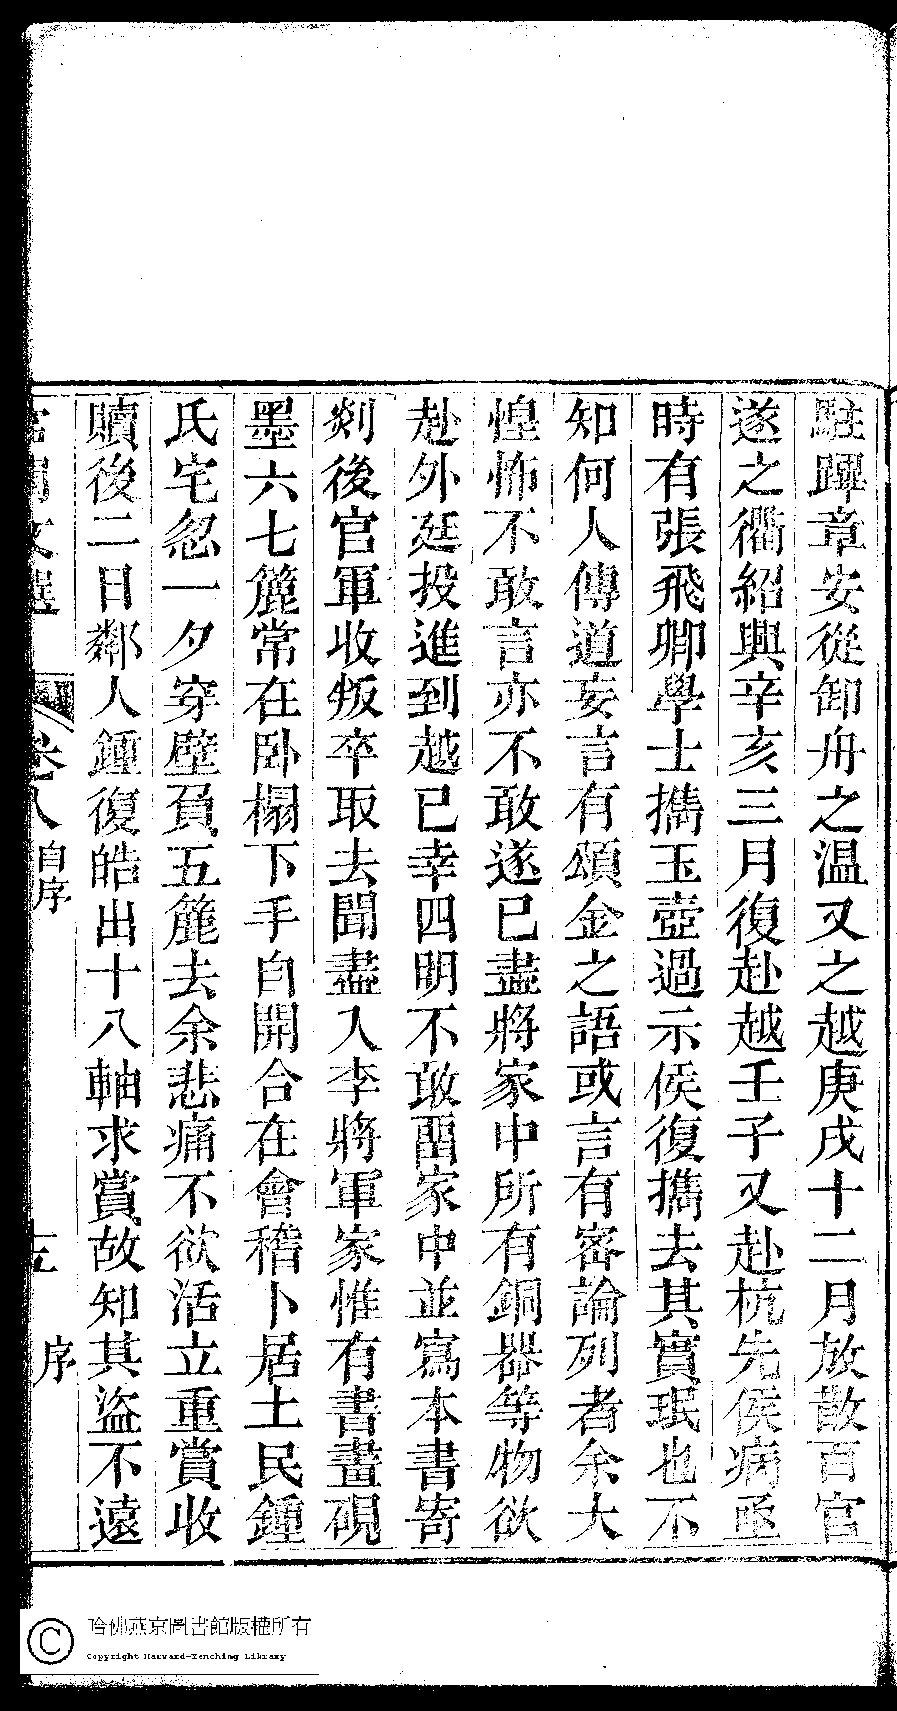 駐蹕章安從卸舟之温又之越庚戌十二月放散百官
遂之衢紹興辛亥三月復赴越壬子又赴杭先侯病亟
時有張飛卿學士攜玉壺過示侯復攜去其實珉也不
知何人傳道妄言有頌金之語或言有密論列者余大
惶怖不敢言亦不敢遂已盡將家中所有銅器等物欲
赴外廷投進到越已幸四明不敢畱家中並寫本書寄
剡後官軍收叛卒取去聞盡入李將軍家惟有書畫硯
墨六七簏常在卧榻下手自開合在會稽卜居土民鍾
氏宅忽一夕穿壁負五簏去余悲痛不欲活立重賞收
贖後二日鄰人鍾復皓出十八軸求賞故知其盜不遠
宫閨文選
卷八
自序
五
序
哈佛燕京圖書館版權所有
Copyright Harvard-Yenching Library